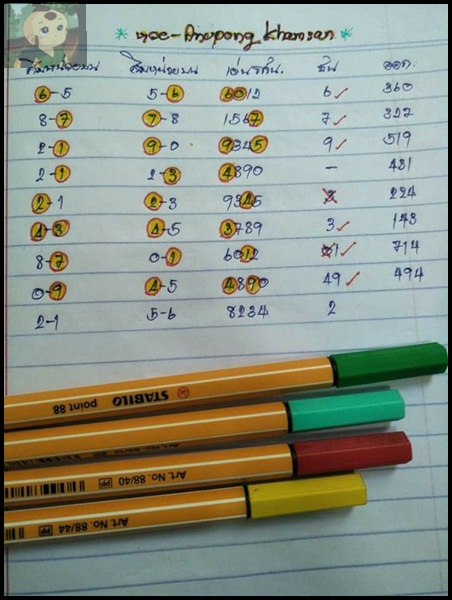 * Anupong Khamsan *
ออก.
6-5 5-6 6012 6 ✓ 360
8-7 7-8 1567 7 ✓ 327
2-1 9-0 9345 9 ✓ 519
2-1 2-3 4890 - 431
2-1 2-3 9345 3 224
4-3 4-5 3789 3 ✓ 143
8-7 0-1 6012 1 ✓ 714
0-9 4-5 4890 49 ✓ 494
2-1 5-6 8234 2
STABILO point 88
Art. No. 88/40 PP
Art. No. 88/44 PP